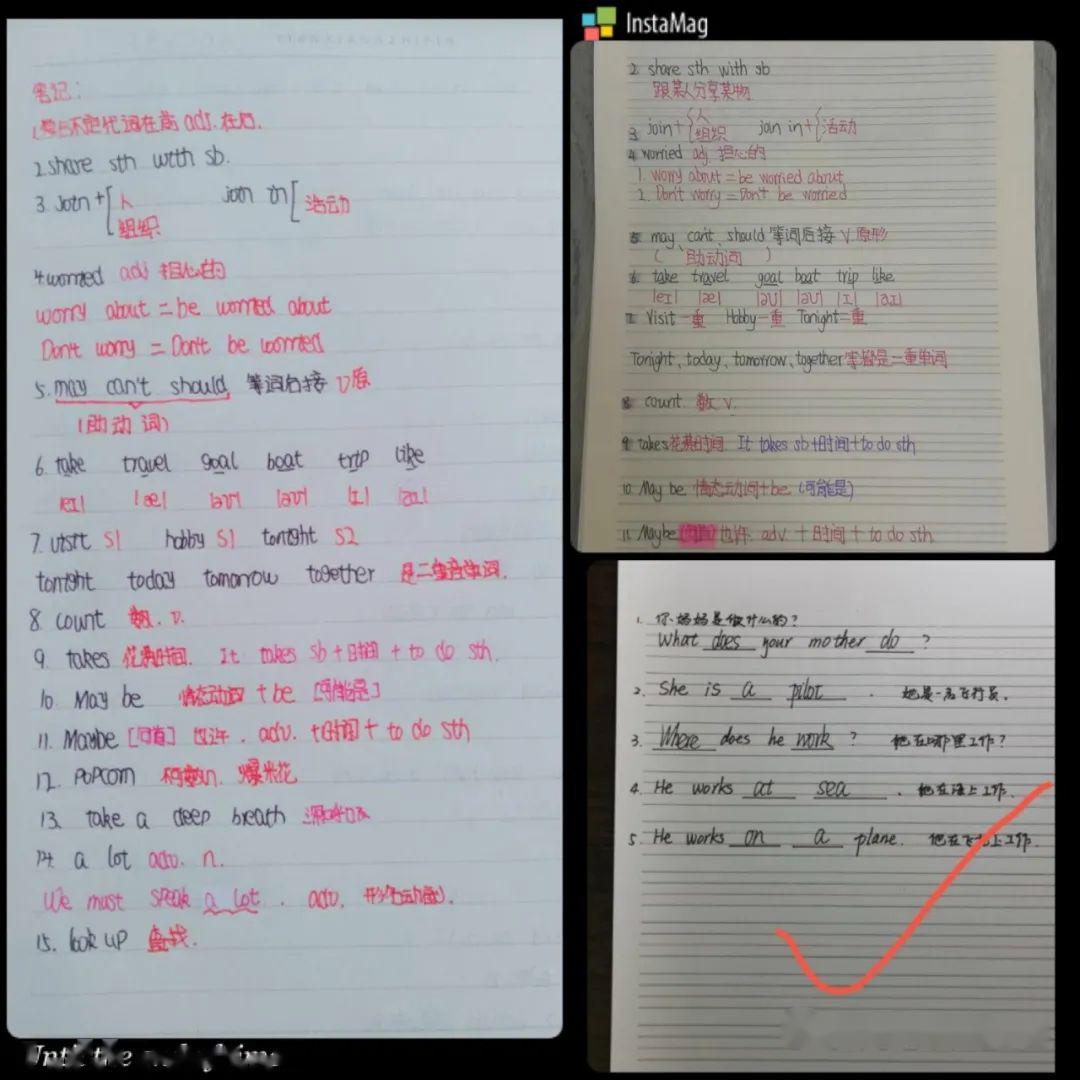 笔记:
1.复合不定代词在前 adj. 在后.
2.share sth with sb.
3. join + 人 组织 join in 活动
4.worried adj 担心的
worry about = be worried about
Don't worry = Don't be worried
5. may can't should 等词后接 v原
(助动词)
6. take travel goal boat trip like
|eɪ| |æ| |əʊ| |əʊ| |ɪ| |aɪ|
7. visit S1 hobby S1 tonight S2
tonight today tomorrow together 是二重音单词.
8. count 数. v.
9. takes 花费时间. It takes sb + 时间 + to do sth.
10. May be 情态动词 + be [可能是]
11. Maybe [句首] 也许. adv. + 时间 + to do sth
12. Popcorn 不可数n. 爆米花
13. take a deep breath 深呼吸
14. a lot adv. n.
We must speak a lot. adv.
15. look up 查找.
InstaMag
2. share sth with sb
跟某人分享某物
3 join+ 人 组织 join in+ 活动
4 worried adj 担心的
1. worry about = be worried about
2. Don't worry = Don't be worried
5 may can't should 等词后接 V.原形
( 助动词 )
6. take travel goal boat trip like
|eɪ| |æ| |əʊ| |əʊ| |ɪ| |aɪ|
7. Visit 一重 Hobby 一重 Tonight 二重
Tonight, today, tomorrow, together 等皆是二重单词
8 count. 数 v.
9 takes 花费时间 It takes sb+时间+to do sth
10. May be 情态动词+be (可能是)
11. Maybe [句首] 也许. adv. + 时间 + to do sth
1. 你妈妈是做什么的?
What does your mother do ?
2. She is a pilot . 她是一名飞行员.
3. Where does he work ? 他在哪里工作?
4. He works at sea . 他在海上工作.
5. He works on a plane. 他在飞机上工作.